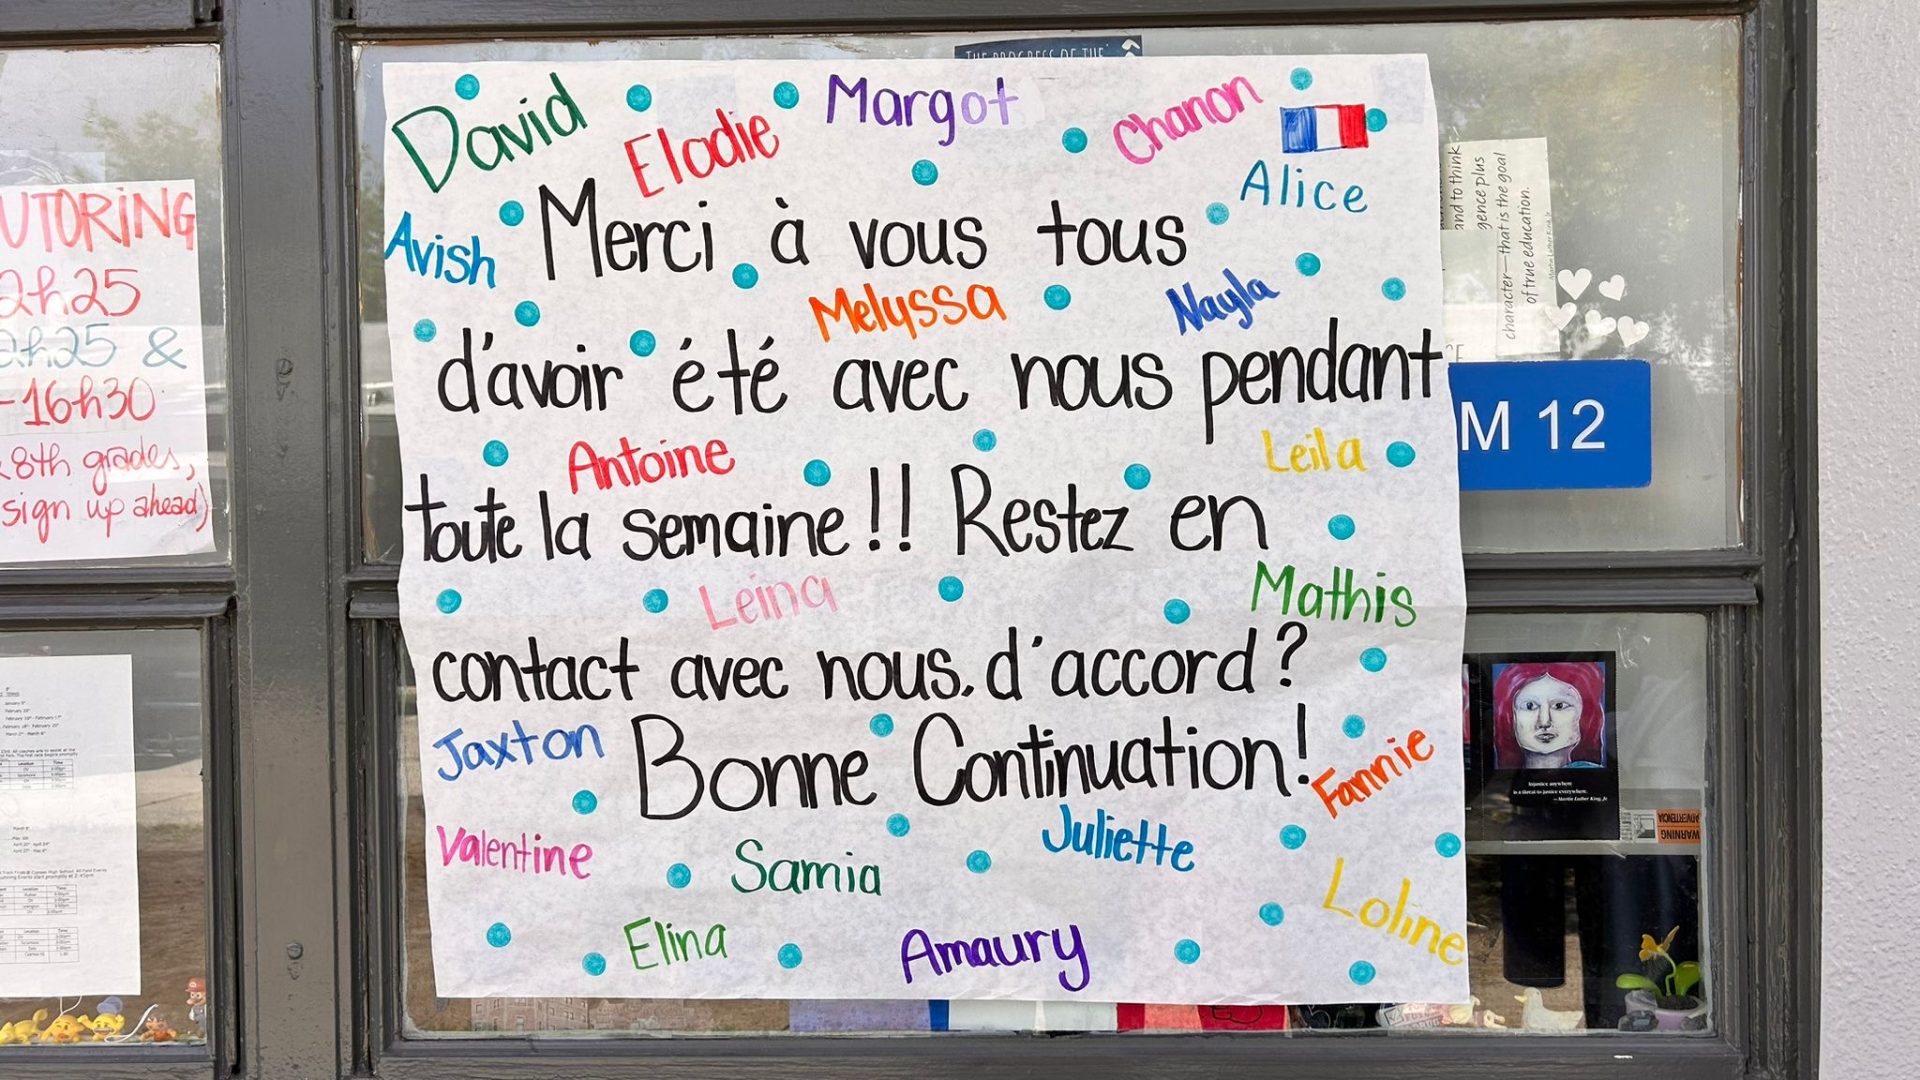 THE PROGRESS OF THE
David
Elodie
Margot
Chanon
Alice
Avish
Merci à vous tous
Melyssa
Nayla
d'avoir été avec nous pendant
Antoine
Leila
toute la semaine!! Restez en
Léina
Mathis
contact avec nous. d'accord?
Jaxton
Bonne Continuation!
Fannie
Valentine
Samia
Juliette
Loline
Elina
Amaury
UTORING
2h25
2h25 &
-16h30
8th grades,
sign up ahead)
and to think
gence plus
character—that is the goal
of true education.
Martin Luther King, Jr.
M 12
Injustice anywhere
is a threat to justice everywhere.
—Martin Luther King, Jr.
WARNING
ADVERTENCIA